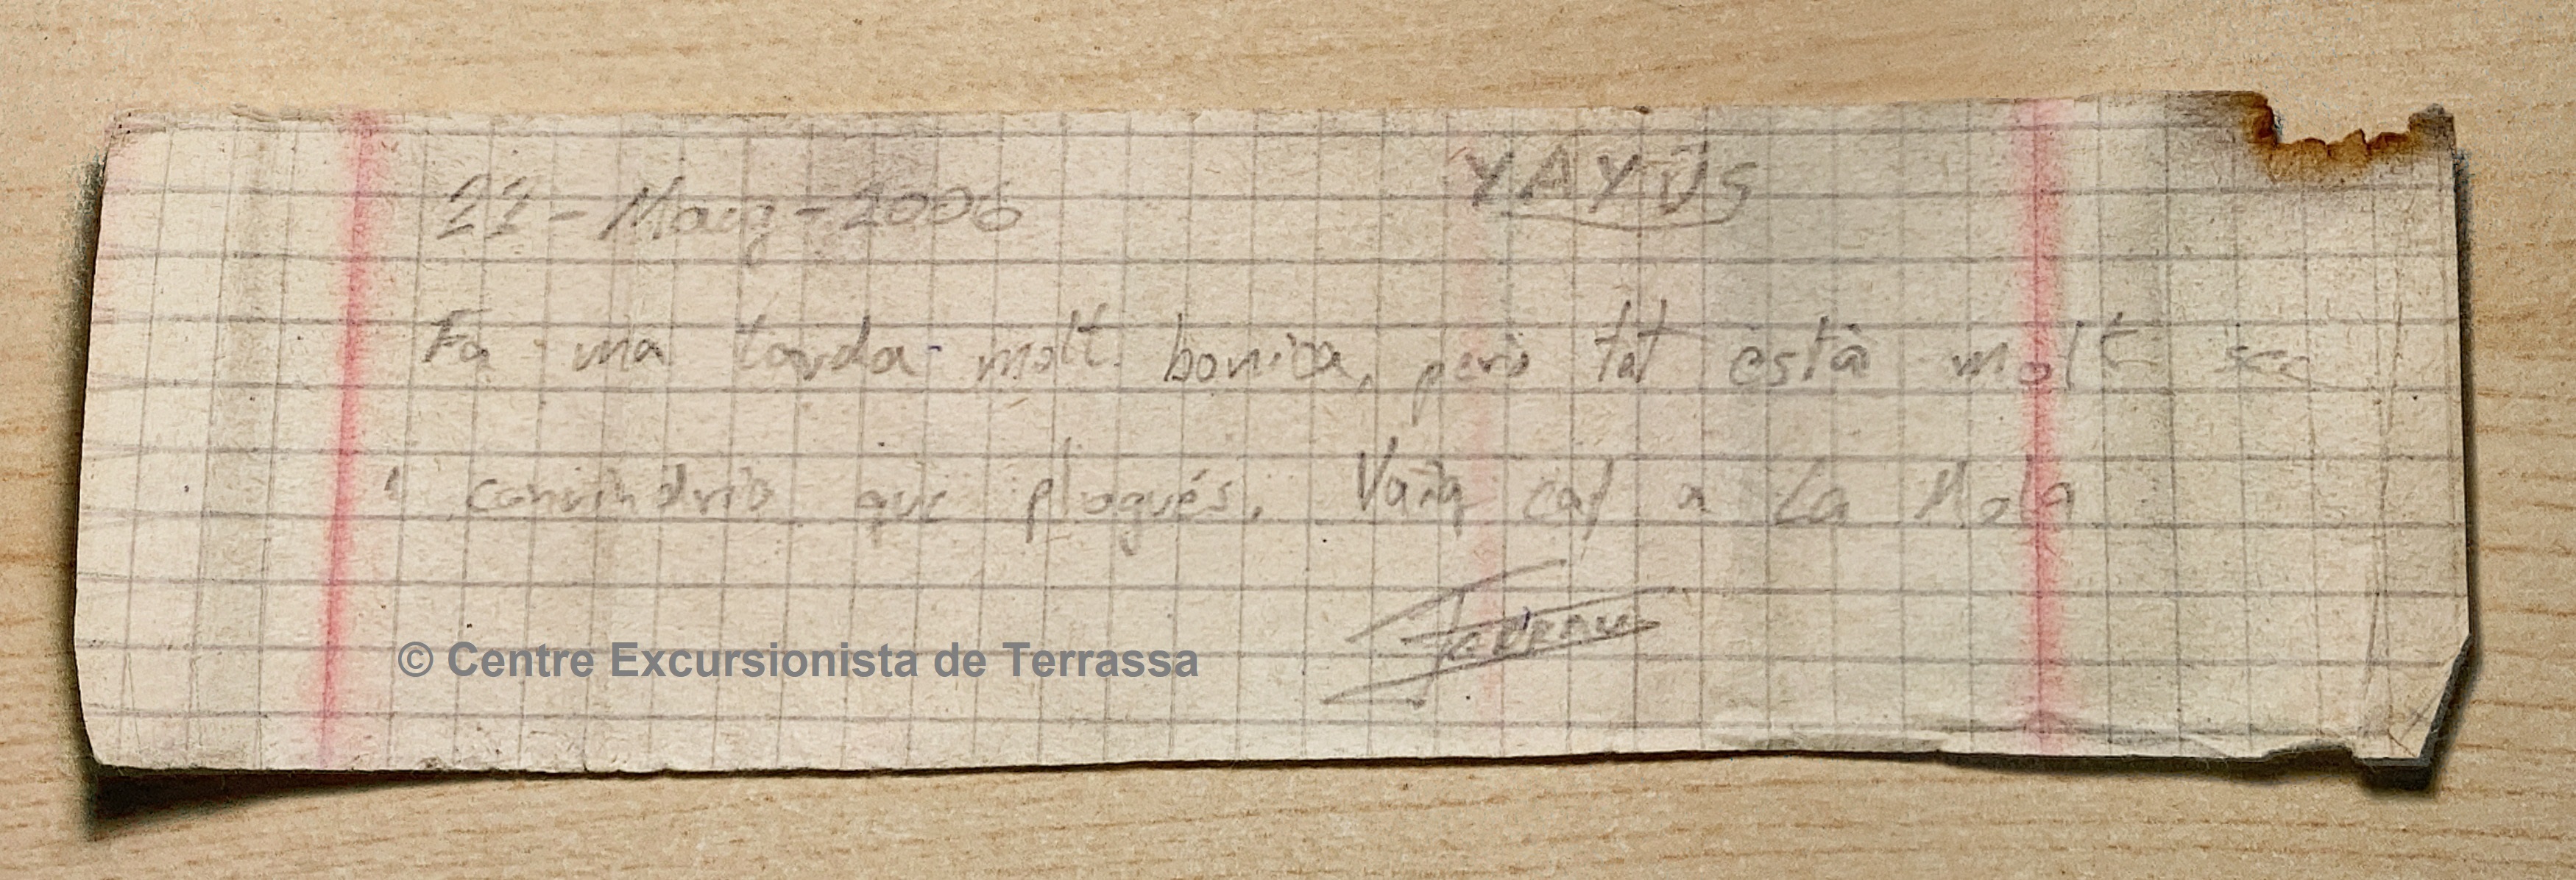 22-Maig-2006 YAYUS
Fa una tarda molt bonica, però tot està molt sec
i convindria que plogués. Vaig cap a La Mola
Ferran
© Centre Excursionista de Terrassa